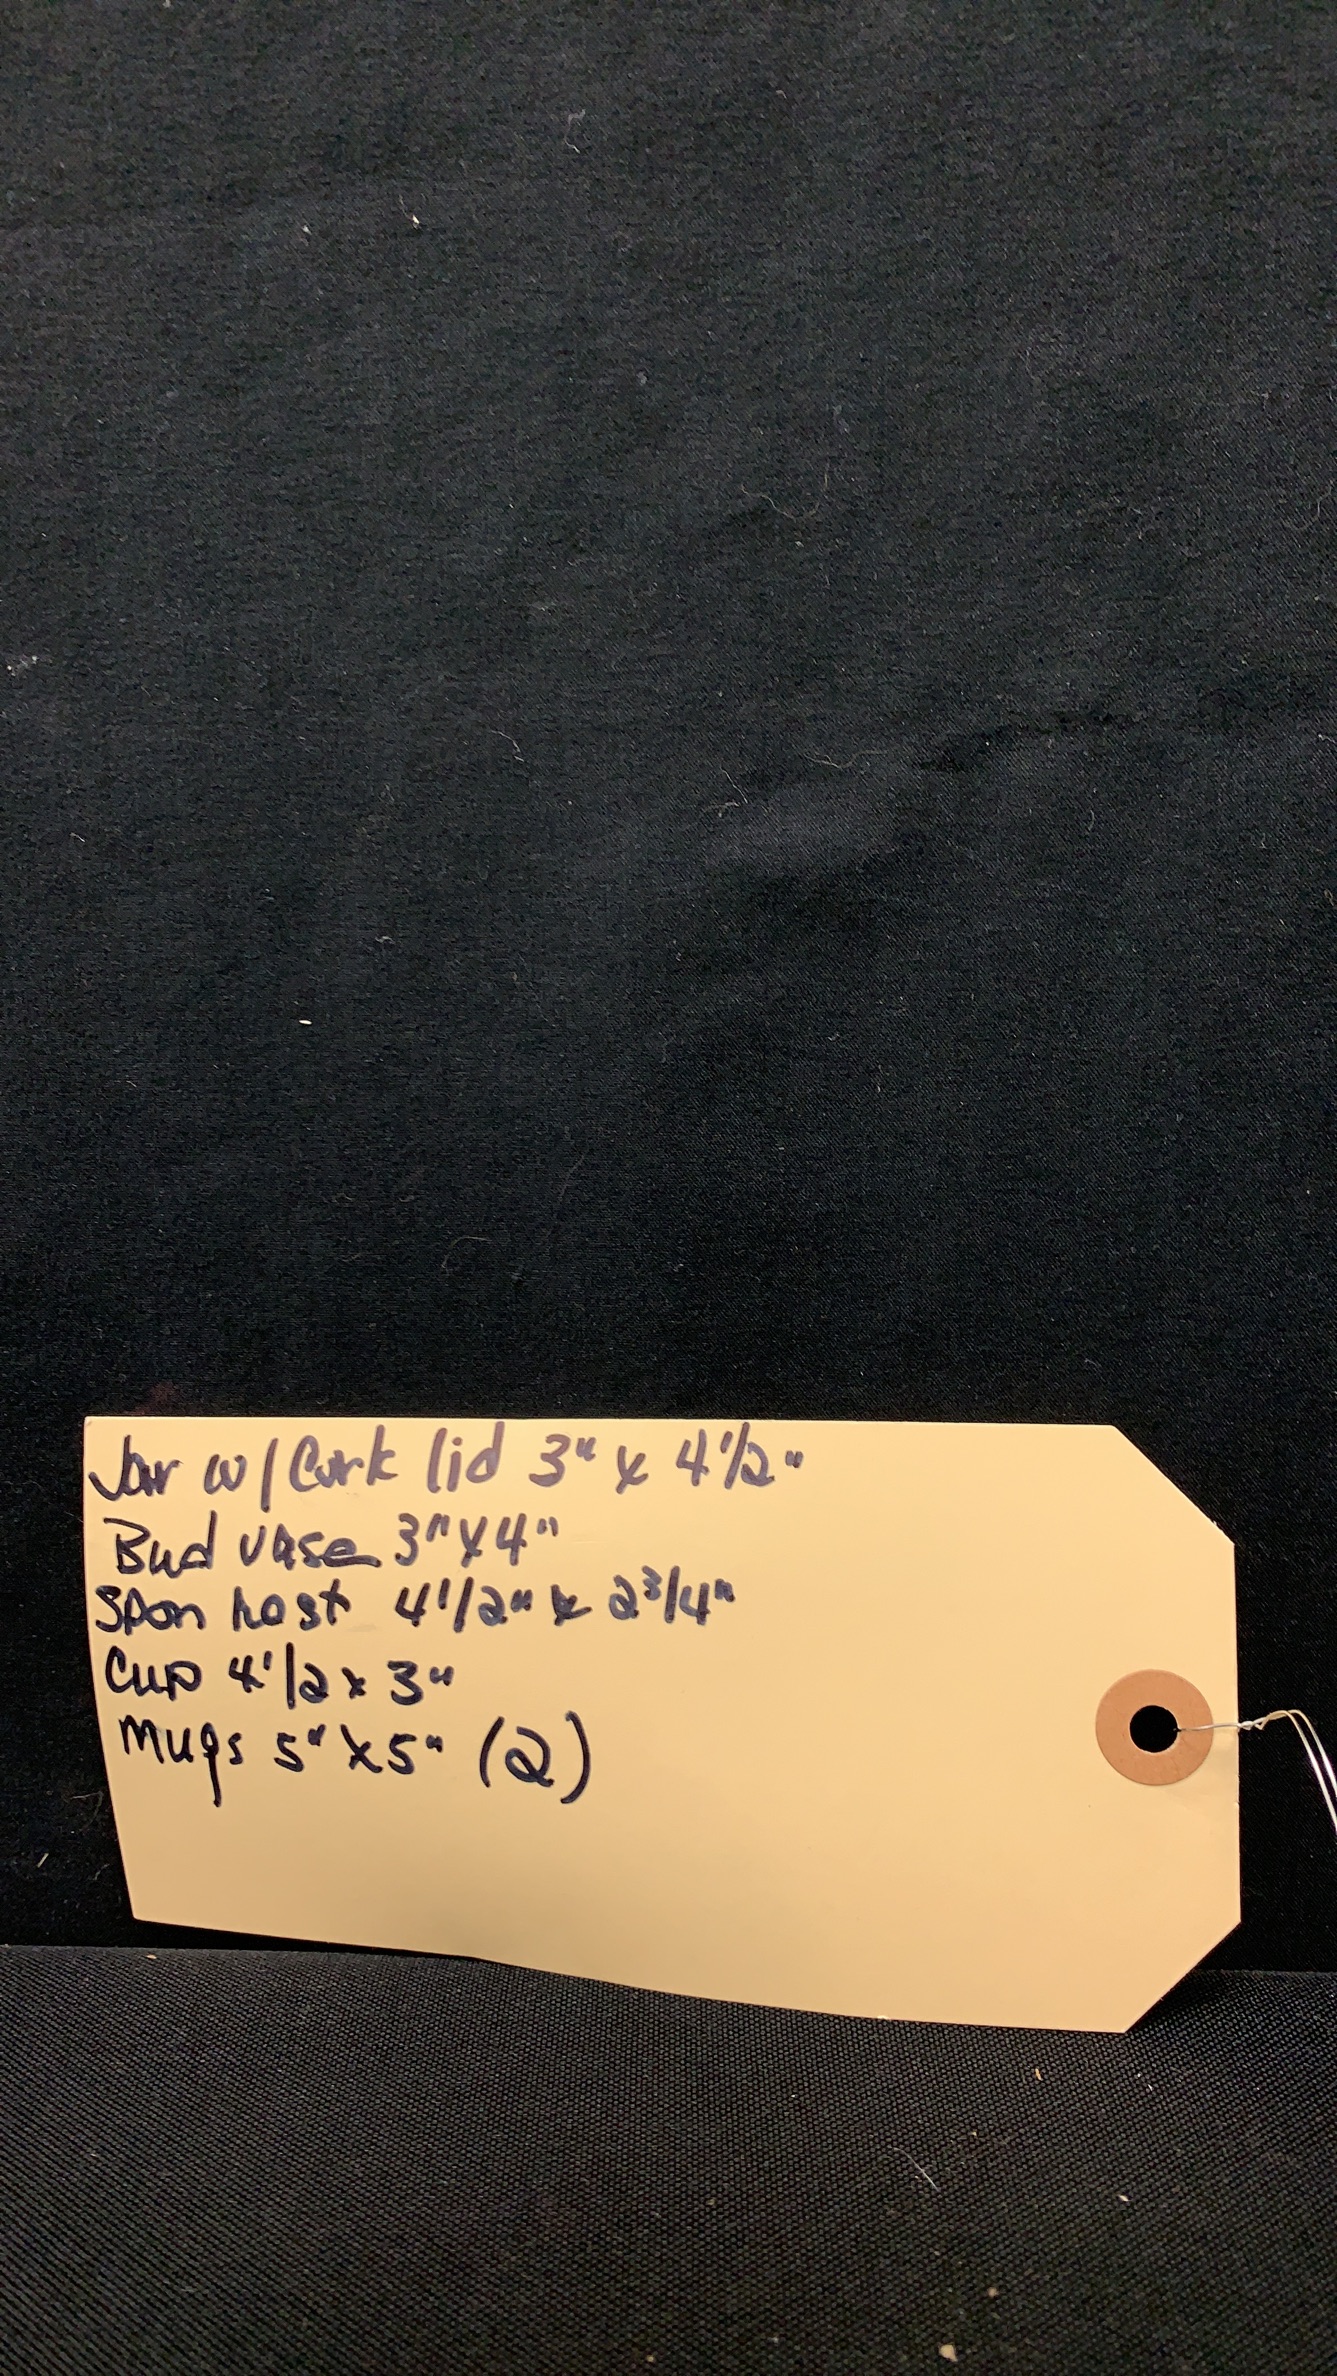 Jar w/ Cork lid 3" x 4 1/2"
Bud vase 3" x 4"
Spon rest 4 1/2" x 2 3/4"
Cup 4 1/2 x 3"
Mugs 5" x 5" (2)